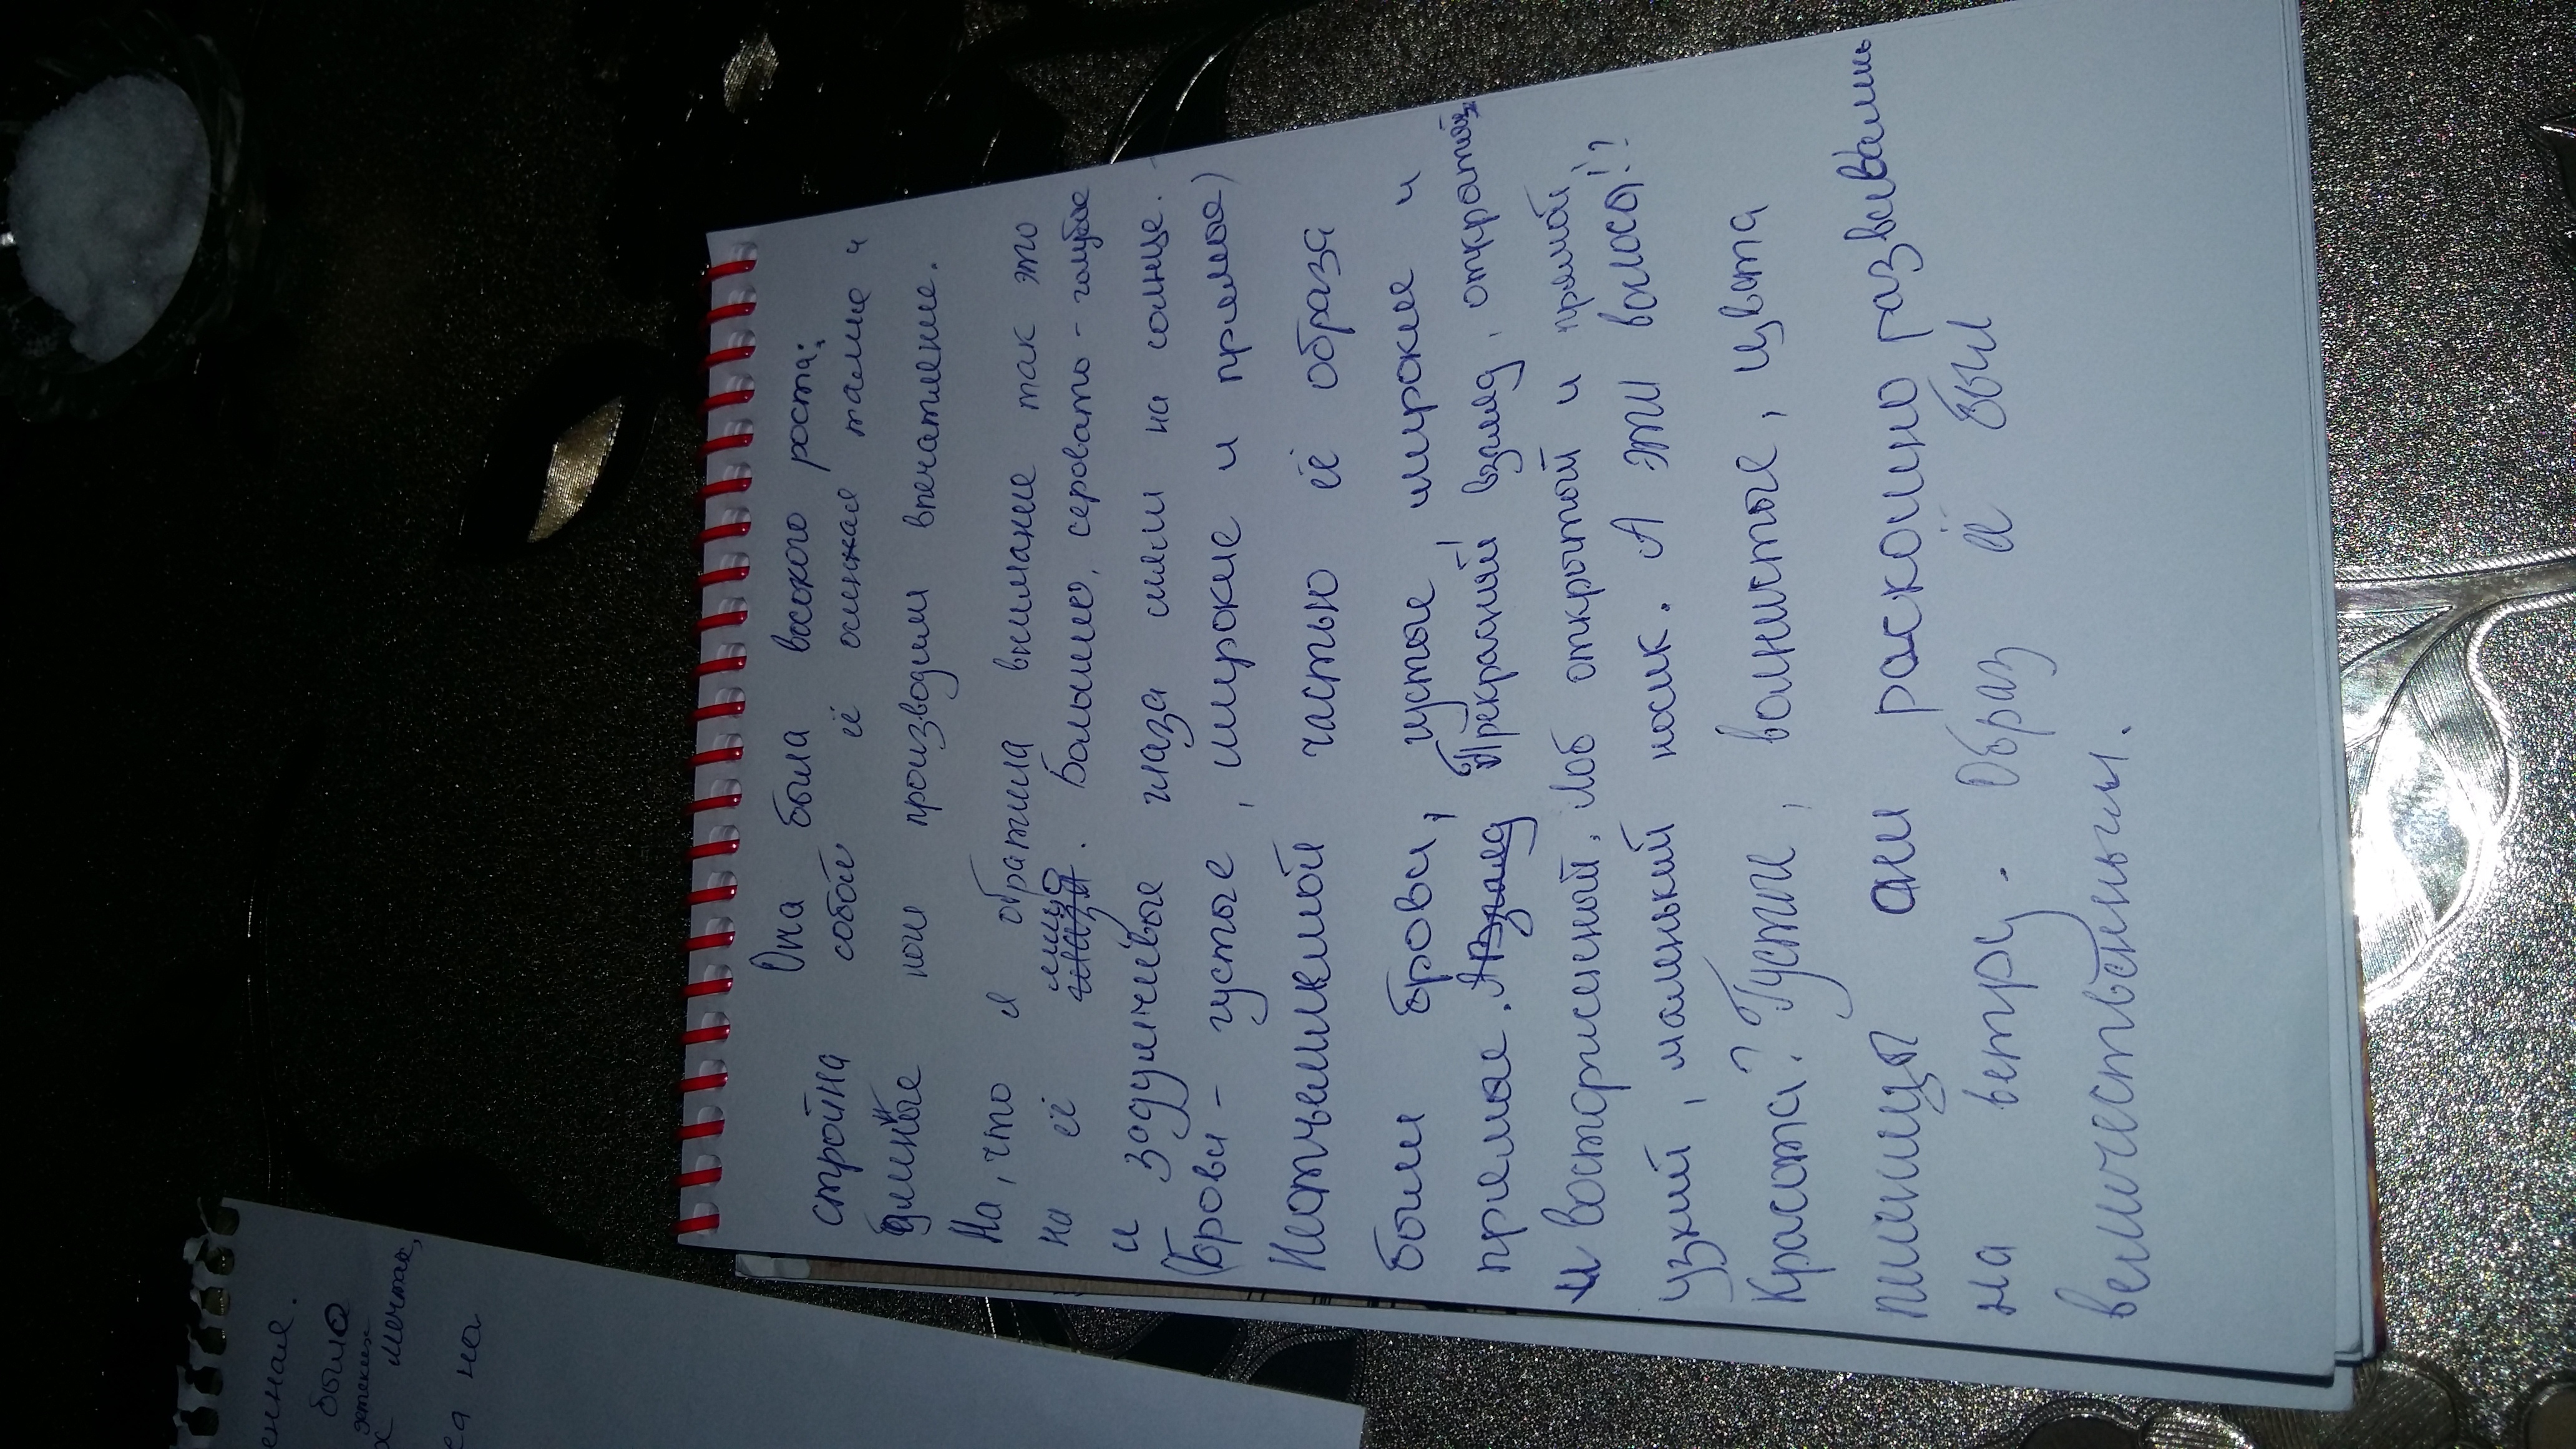 Она была высокого роста:
стройна собой её осинкая талие и
длинные ноги производили впечатление.
На, что я обратила внимание так это
на её лицо глаза. Большие, серовато-голубые
и задумчивые глаза сияли на солнце.
(Брови - густые, широкие и прямые)
Неотъемлемой частью её образа
были брови, густые широкие и
прямые. А взгляд Прекрасный взгляд, открытый
и восторженный. Лоб открытый и прямой,
узкий, маленький носик. А эти волосы!?
Красота? Густые, волнистые, цвета
пшеницы они раскошно развивались
на ветру. Образ её был
величественным.
енная.
было
детских
х мечтах,
са на